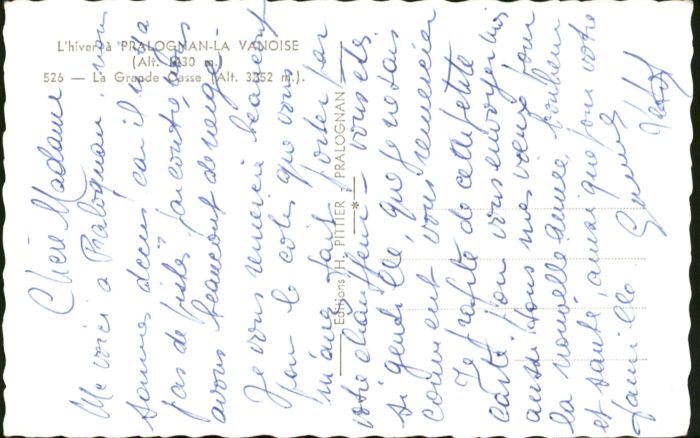 L'hiver à PRALOGNAN-LA VANOISE
(Alt. 1430 m.)
526 - La Grande Casse (Alt. 3852 m.).
Editions H. PITTIER, PRALOGNAN
Chère Madame
Me voici à Pralognan, nous
sommes car il n'y a
pas de par contre nous
avons beaucoup de neige.
Je vous remercie beaucoup
pour le colis que vous
m'avez fait porter par
votre chauffeur - vous êtes
si gentille, que je ne sais
comment vous remercier
Je profite de cette petite
carte pour vous envoyer
aussi tous mes vœux pour
la nouvelle année, bonheur
et santé, ainsi que pour votre
famille